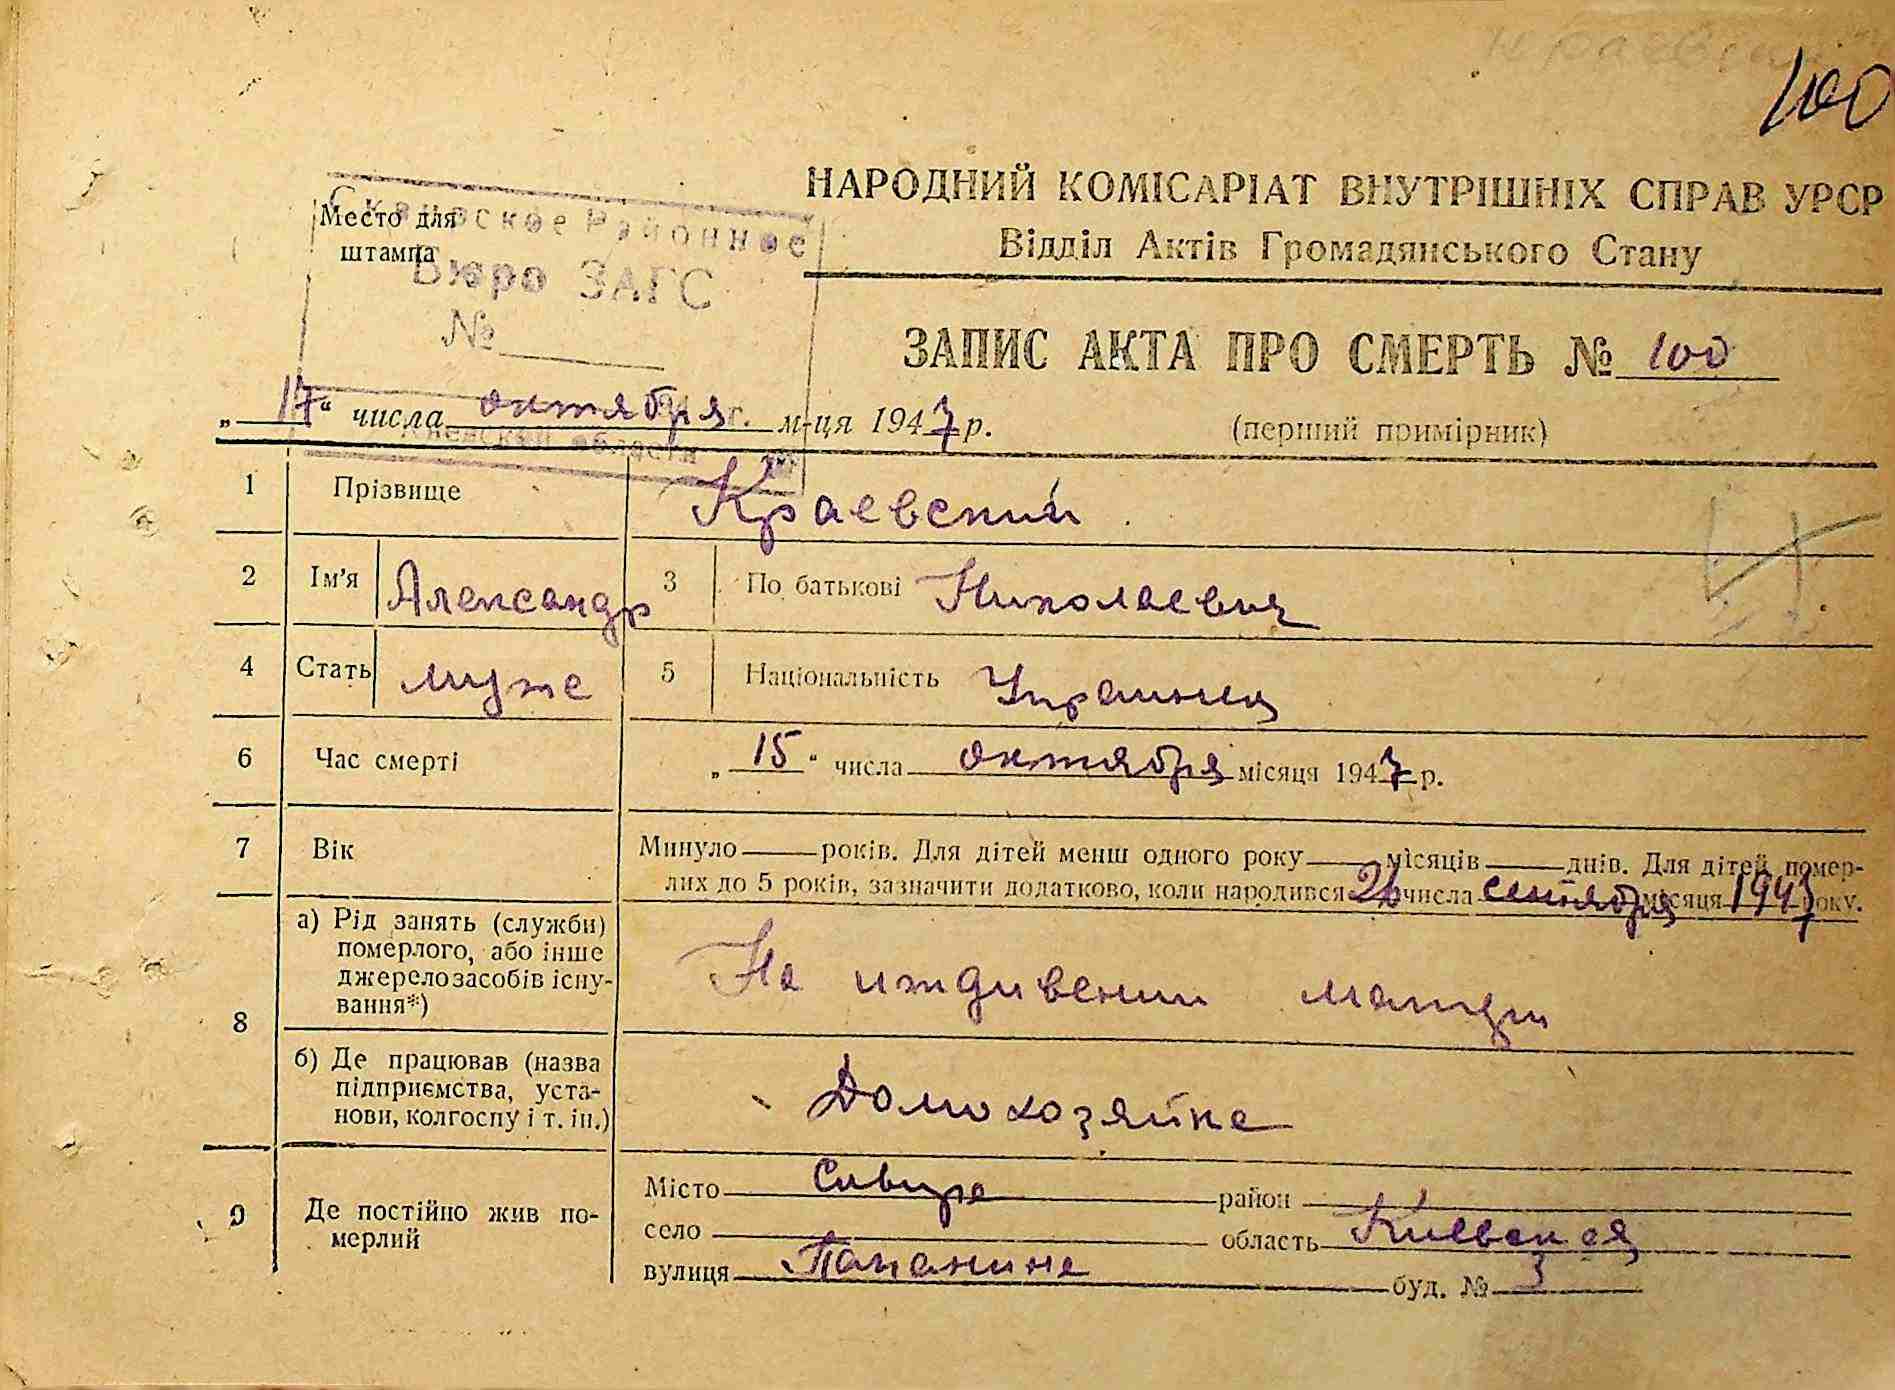 Краевски
100
НАРОДНИЙ КОМІСАРІАТ ВНУТРІШНІХ СПРАВ УРСР
Відділ Актів Громадянського Стану
Место для
штампа
Районное
Бюро ЗАГС
№
Киевской области
ЗАПИС АКТА ПРО СМЕРТЬ № 100
„17“ числа октября м-ця 1947 р.
(перший примірник)
1 Прізвище Краевский
2 Ім'я Александр 3 По батькові Николаевич
4 Стать муже 5 Національність Украинец
6 Час смерті „15“ числа октября місяця 1947 р.
7 Вік Минуло — років. Для дітей менш одного року — місяців — днів. Для дітей, помер-
лих до 5 років, зазначити додатково, коли народився 26 числа сентября місяця 1947 року.
8 а) Рід занять (служби)
померлого, або інше
джерело засобів існу-
вання*)
На иждивении матери
б) Де працював (назва
підприємства, уста-
нови, колгоспу і т. ін.)
Домохозяйка
9 Де постійно жив по-
мерлий
Місто Сквира район
село область Киевская
вулиця Папанина буд. № 3